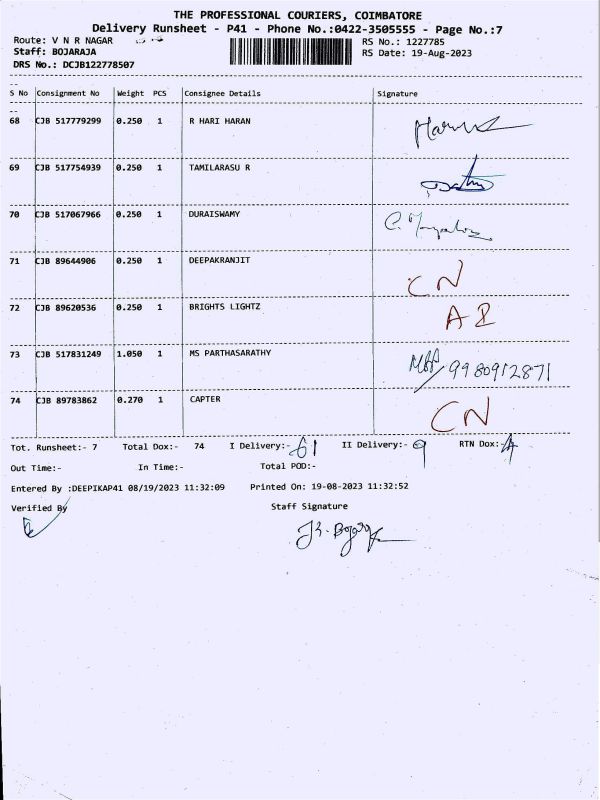 THE PROFESSIONAL COURIERS, COIMBATORE
Delivery Runsheet - P41 - Phone No.:0422-3505555 - Page No.:7
Route: V N R NAGAR RS No.: 1227785
Staff: BOJARAJA RS Date: 19-Aug-2023
DRS No.: DCJB122778507
S No Consignment No Weight PCS Consignee Details Signature
68 CJB 517779299 0.250 1 R HARI HARAN
69 CJB 517754939 0.250 1 TAMILARASU R
70 CJB 517067966 0.250 1 DURAISWAMY
71 CJB 89644906 0.250 1 DEEPAKRANJIT CN
72 CJB 89620536 0.250 1 BRIGHTS LIGHTZ
73 CJB 517831249 1.050 1 MS PARTHASARATHY 9980912871
74 CJB 89783862 0.270 1 CAPTER CN
Tot. Runsheet:- 7 Total Dox:- 74 I Delivery:- 61 II Delivery:- 9 RTN Dox:- 4
Out Time:- In Time:- Total POD:-
Entered By :DEEPIKAP41 08/19/2023 11:32:09 Printed On: 19-08-2023 11:32:52
Verified By Staff Signature